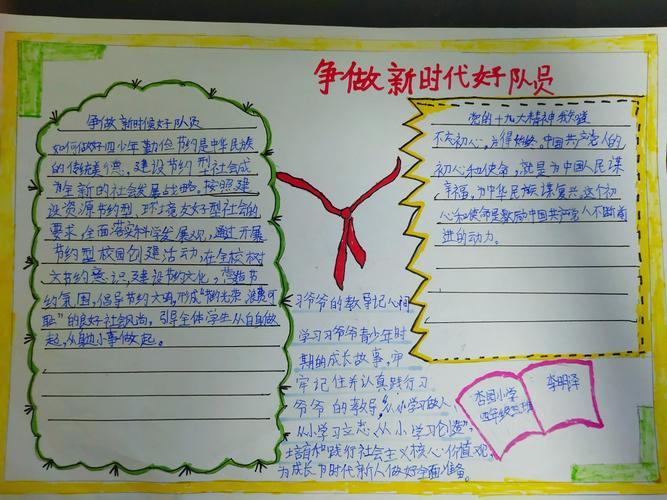 争做新时代好队员
争做新时代好队员
如何做好四少年勤俭节约是中华民族
的传统美德，建设节约型社会成
为全新的社会发展战略。按照建
设资源节约型、环境友好型社会的
要求，全面落实科学发展观，通过开展
节约型校园创建活动，在全校树
立节约意识，建设节约文化，营造节
约氛围，倡导节约文明，形成"节约光荣，浪费可
耻"的良好社会风尚，引导全体学生从自身做
起，从身边小事做起。
党的十九大精神我知道
不忘初心，方得始终。中国共产党人的
初心和使命，就是为中国人民谋
幸福，为中华民族谋复兴。这个初
心和使命是激励中国共产党人不断前
进的动力。
习爷爷的教导记心间
学习习爷爷青少年时
期的成长故事，牢
牢记住并认真践行习
爷爷的教导，"从小学习做人，
从小学习立志，从小学习创造"，
培育和践行社会主义核心价值观，
为成长为时代新人做好全面准备。
杏园小学
四年级三班
李明泽